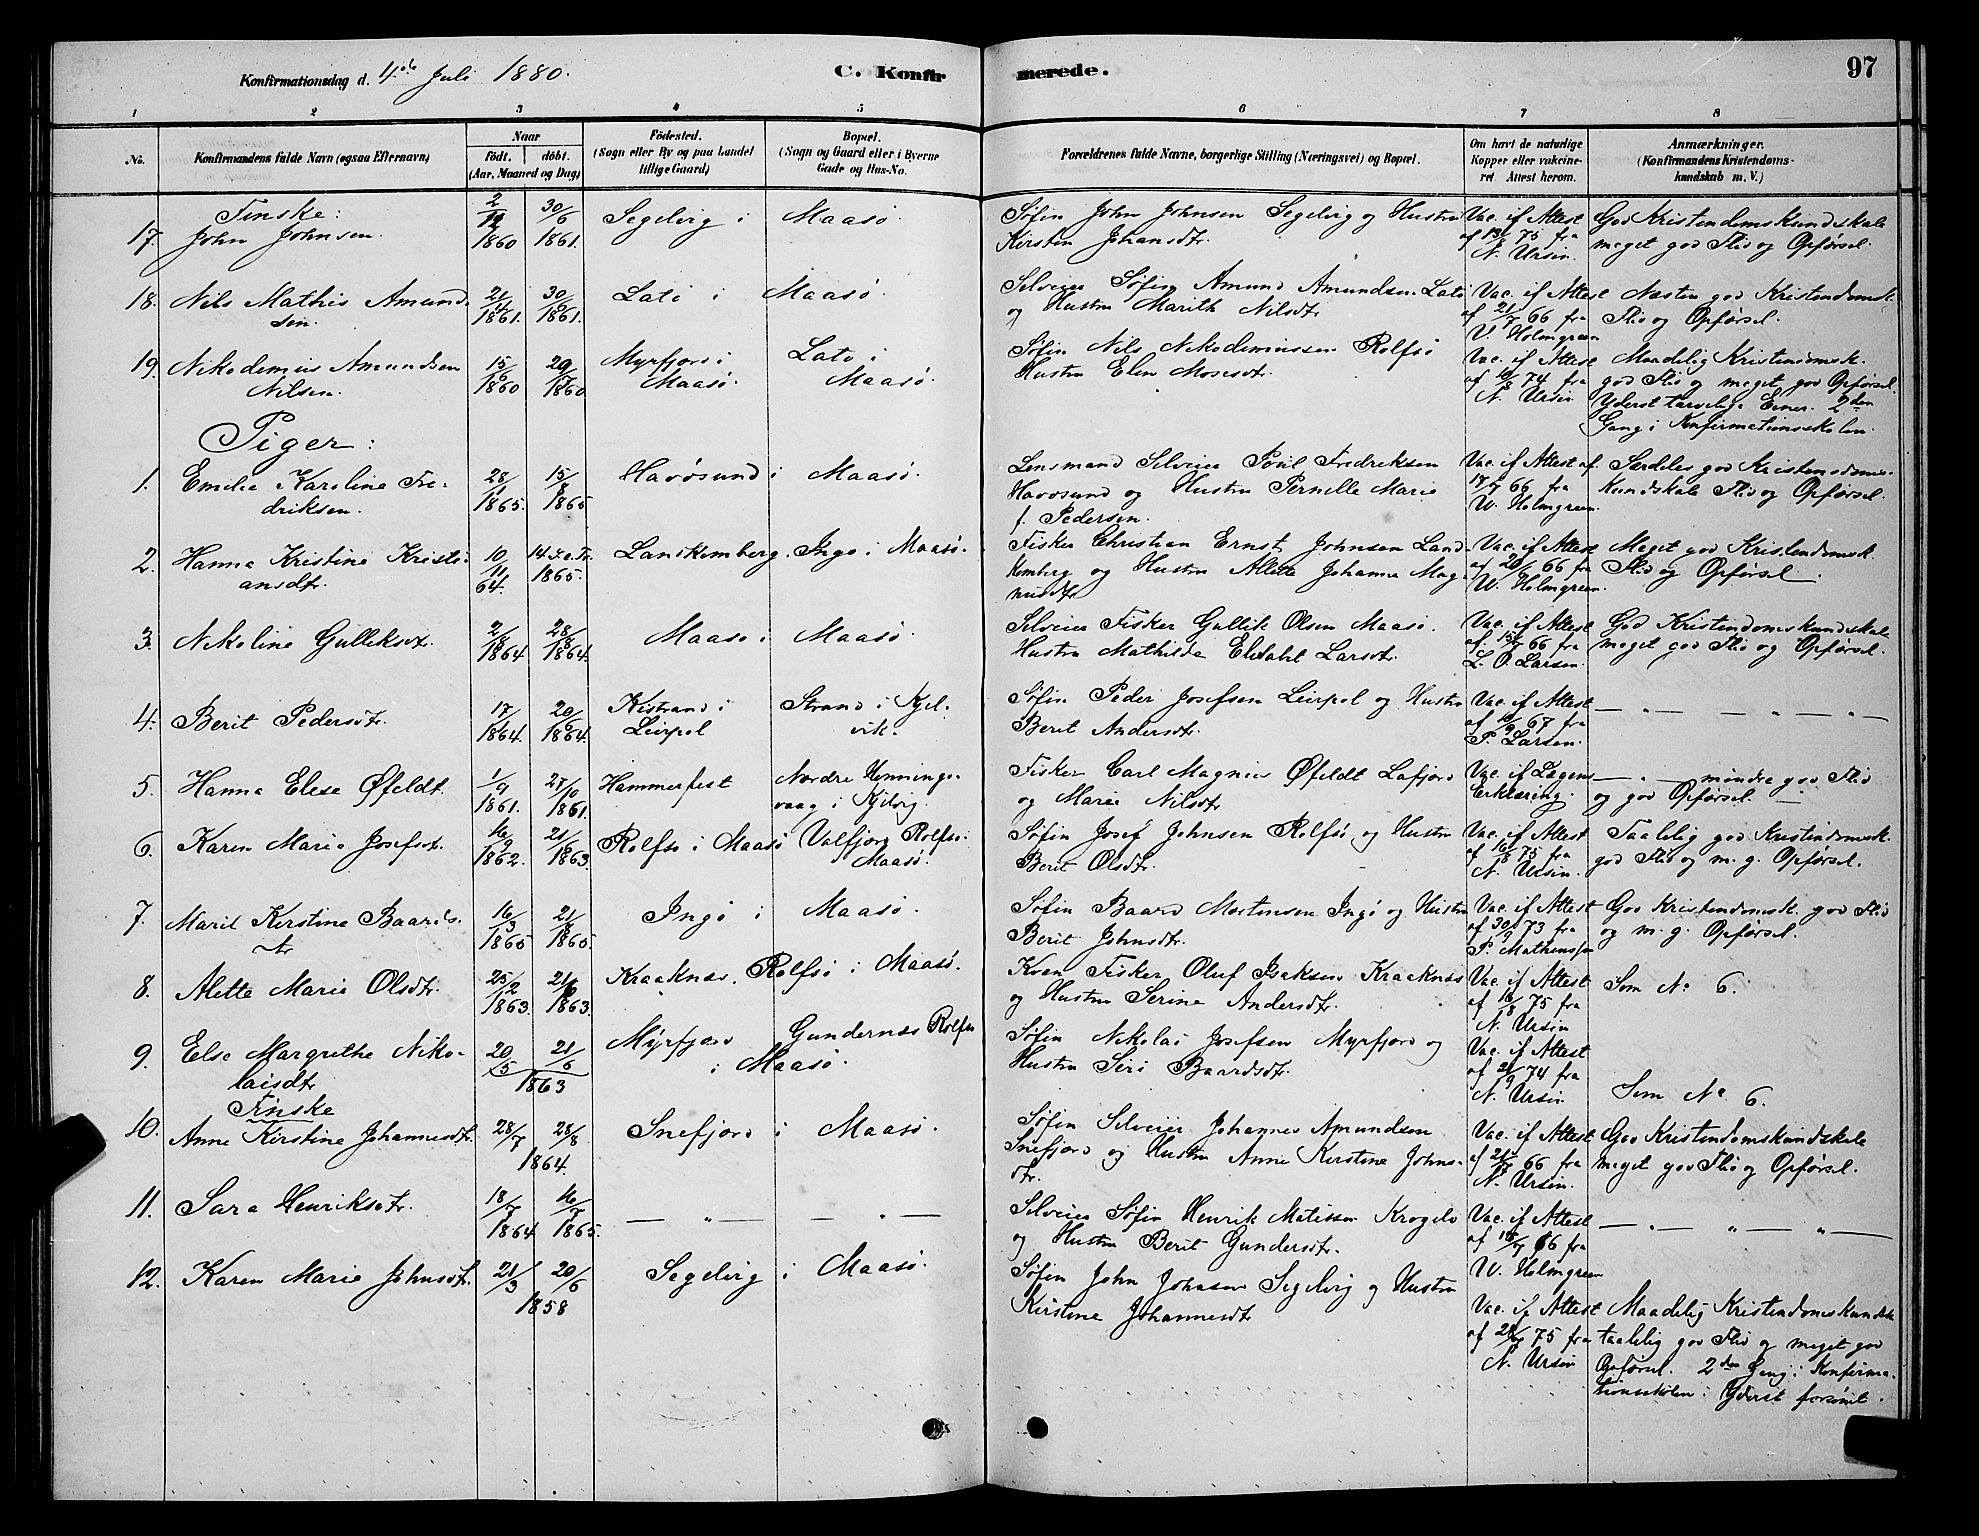 Konfirmationsdag d. 4de Juli 1880.
C. Konfir
merede.
97
1 2 3 4 5 6 7 8
No.
Konfirmandens fulde Navn (ogsaa Efternavn)
Naar
født. døbt.
(Aar, Maaned og Dag)
Födested.
(Sogn eller By og paa Landet
tillige Gaard)
Bopæl.
(Sogn og Gaard eller i Byerne
Gade og Hus-No.
Forældrenes fulde Navne, borgerlige Stilling (Næringsvei) og Bopæl.
Om havt de naturlige
Kopper eller vakcine-
ret Attest herom.
Anmærkninger.
(Konfirmandens Kristendoms-
kundskab m. V.)
Finske:
17. John Johnsen. 2/12 1860 30/6 1861. Segelvig i Maasø.
Søfin John Johnsen Segelvig og Hustru
Kirsten Johansdtr.
Vac. if Attest
af 13/8 75 fra
N. Ursin.
God Kristendomskundskab
meget god Flid og Opførsel.
18. Nils Mathis Amund-
sen. 1861. 30/6 1861. Latø i Maasø.
Selveier Søfin Amund Amundsen Latø
og Hustru Marith Nilsdtr
Vac. if Attest
af 21/7 66 fra
V. Holmgreen
Næsten god Kristendomsk.
Flid og Opførsel.
19. Nikodemus Amundsen
Nilsen. 15/6 1860 1860 Myrfjord i
Maasø. Latø i
Maasø.
Søfin Nils Nikodemussen Rolfsø
Hustru Elen Mosesdtr.
Vac. if Attest
af 16/8 74 fra
N. Ursin
Maadelig Kristendomsk.
god Flid og meget god Opførsel.
Yderst tarvelige Evner. 2den
Gang i Konfirmationsskolen.
Piger:
1. Emelie Karoline Fre-
driksen. 28/1 1865. 15/8 1865 Havøsund i Maasø.
Lensmand Selveier Poul Fredriksen
Havøsund og Hustru Pernille Marie
f. Pedersen.
Vac. if Attest af
17/7 66 fra
W. Holmgreen.
Særdeles god Kristendoms-
kundskab Flid og Opførsel.
2. Hanna Kristine Kristi-
ansdtr. 10/11 64. 1865. Landkemberg. Ingø i Maasø.
Fisker Christian Ernst Johnsen Land-
kemberg og Hustru Alette Johanne Mag-
nusdtr
Vac. if Attest
66 fra
W. Holmgreen.
Meget god Kristendomsk.
Flid og Opførsel.
3. Nikoline Gulliksdt. 2/8 1864 28/8 1864. Maasø i Maasø.
Selveier Fisker Gullik Olsen Maasø.
Hustru Mathilde Elisabet Larsdtr.
Vac. if Attest
66 fra
L. O. Larsen.
God Kristendomskundskab
meget god Flid og Opførsel.
4. Berit Pedersdtr. 1864. 20/6 1864. Kistrand i
Leirpol Strand i Kjel-
vik.
Søfin Peder Josefsen Leirpol og Hustru
Berit Andersdtr.
Vac. if Attest
67 fra
P. Larsen.
— „ — „ — „ —
5. Hanna Elese Øfeldt. 1/9 1861. 27/10 1861. Hammerfest Nordre Honnings-
vaag i Kjelvig.
Fisker Carl Magnus Øfeldt Lafjord
og Marie Nilsdtr
Vac. if Lægens
Erklæring.
— „ — mindre god Flid
og god Opførsel. —
6. Karen Marie Josefsdt. 16/9 1862. 21/6 1863 Rolfsø i Maasø Valfjord Rolfsø i
Maasø.
Søfin Josef Johnsen Rolfsø og Hustru
Berit Olsdtr.
Vac. if Attest
af 16/8 75 fra
N. Ursin.
Taalelig god Kristendomsk.
god Flid og m. g. Opførsel.
7. Marit Kirstine Baards-
tr 16/3 1865 1865. Ingø i Maasø.
Søfin Baard Mortensen Ingø og Hustru
Berit Johnsdtr.
Vac. if Attest
af 30/9 73 fra
P. Mathiessen
God Kristendomsk. god Flid
og m. g. Opførsel.
8. Alette Marie Olsdtr. 25/2 1863. 21/6 1863. Kraaknæs. Rolfsø i Maasø.
Kvæn Fisker Oluf Isaksen Kraaknæs
og Hustru Serine Andersdtr.
Vac. if Attest
af 16/8 75 fra
N. Ursin
Som No 6.
9. Else Margrethe Niko-
laisdtr 20/5 21/6 1863 Myrfjord Gundernæs Rolfsø
i Maasø.
Søfin Nikolai Josefsen Myrfjord og
Hustru Siri Baardsdtr.
Vac. if Attest
af 21/9 74 fra
N. Ursin
Som No 6.
Finske
10. Anne Kirstine Johannesdtr. 28/7 28/8 1864. Snefjord i Maasø.
Søfin Selveier Johannes Amundsen
Snefjord og Hustru Anne Kirstine Johns-
dtr.
Vac. if Attest
66 fra
N. Ursin.
God Kristendomskundskab
meget god Flid og Opførsel.
11. Sara Henriksdtr. 18/7 1864 16/7 1865. — „ — — „ —
Selveier Søfin Henrik Matissen Krogelv
og Hustru Berit Gundersdtr.
Vac. if Attest
66 fra
W. Holmgreen
— „ — „ — „ —
12. Karen Marie Johnsdtr. 21/3 20/6 1858 Segelvig i Maasø.
Søfin John Johnsen Segelvig og Hustru
Kirstine Johannesdtr
Vac. if Attest
75 fra
N. Ursin
Maadelig Kristendomskundsk.
taalelig god Flid og meget god
Opførsel. 2den Gang i Konfirma-
tionsskolen. Yderst forsømt.